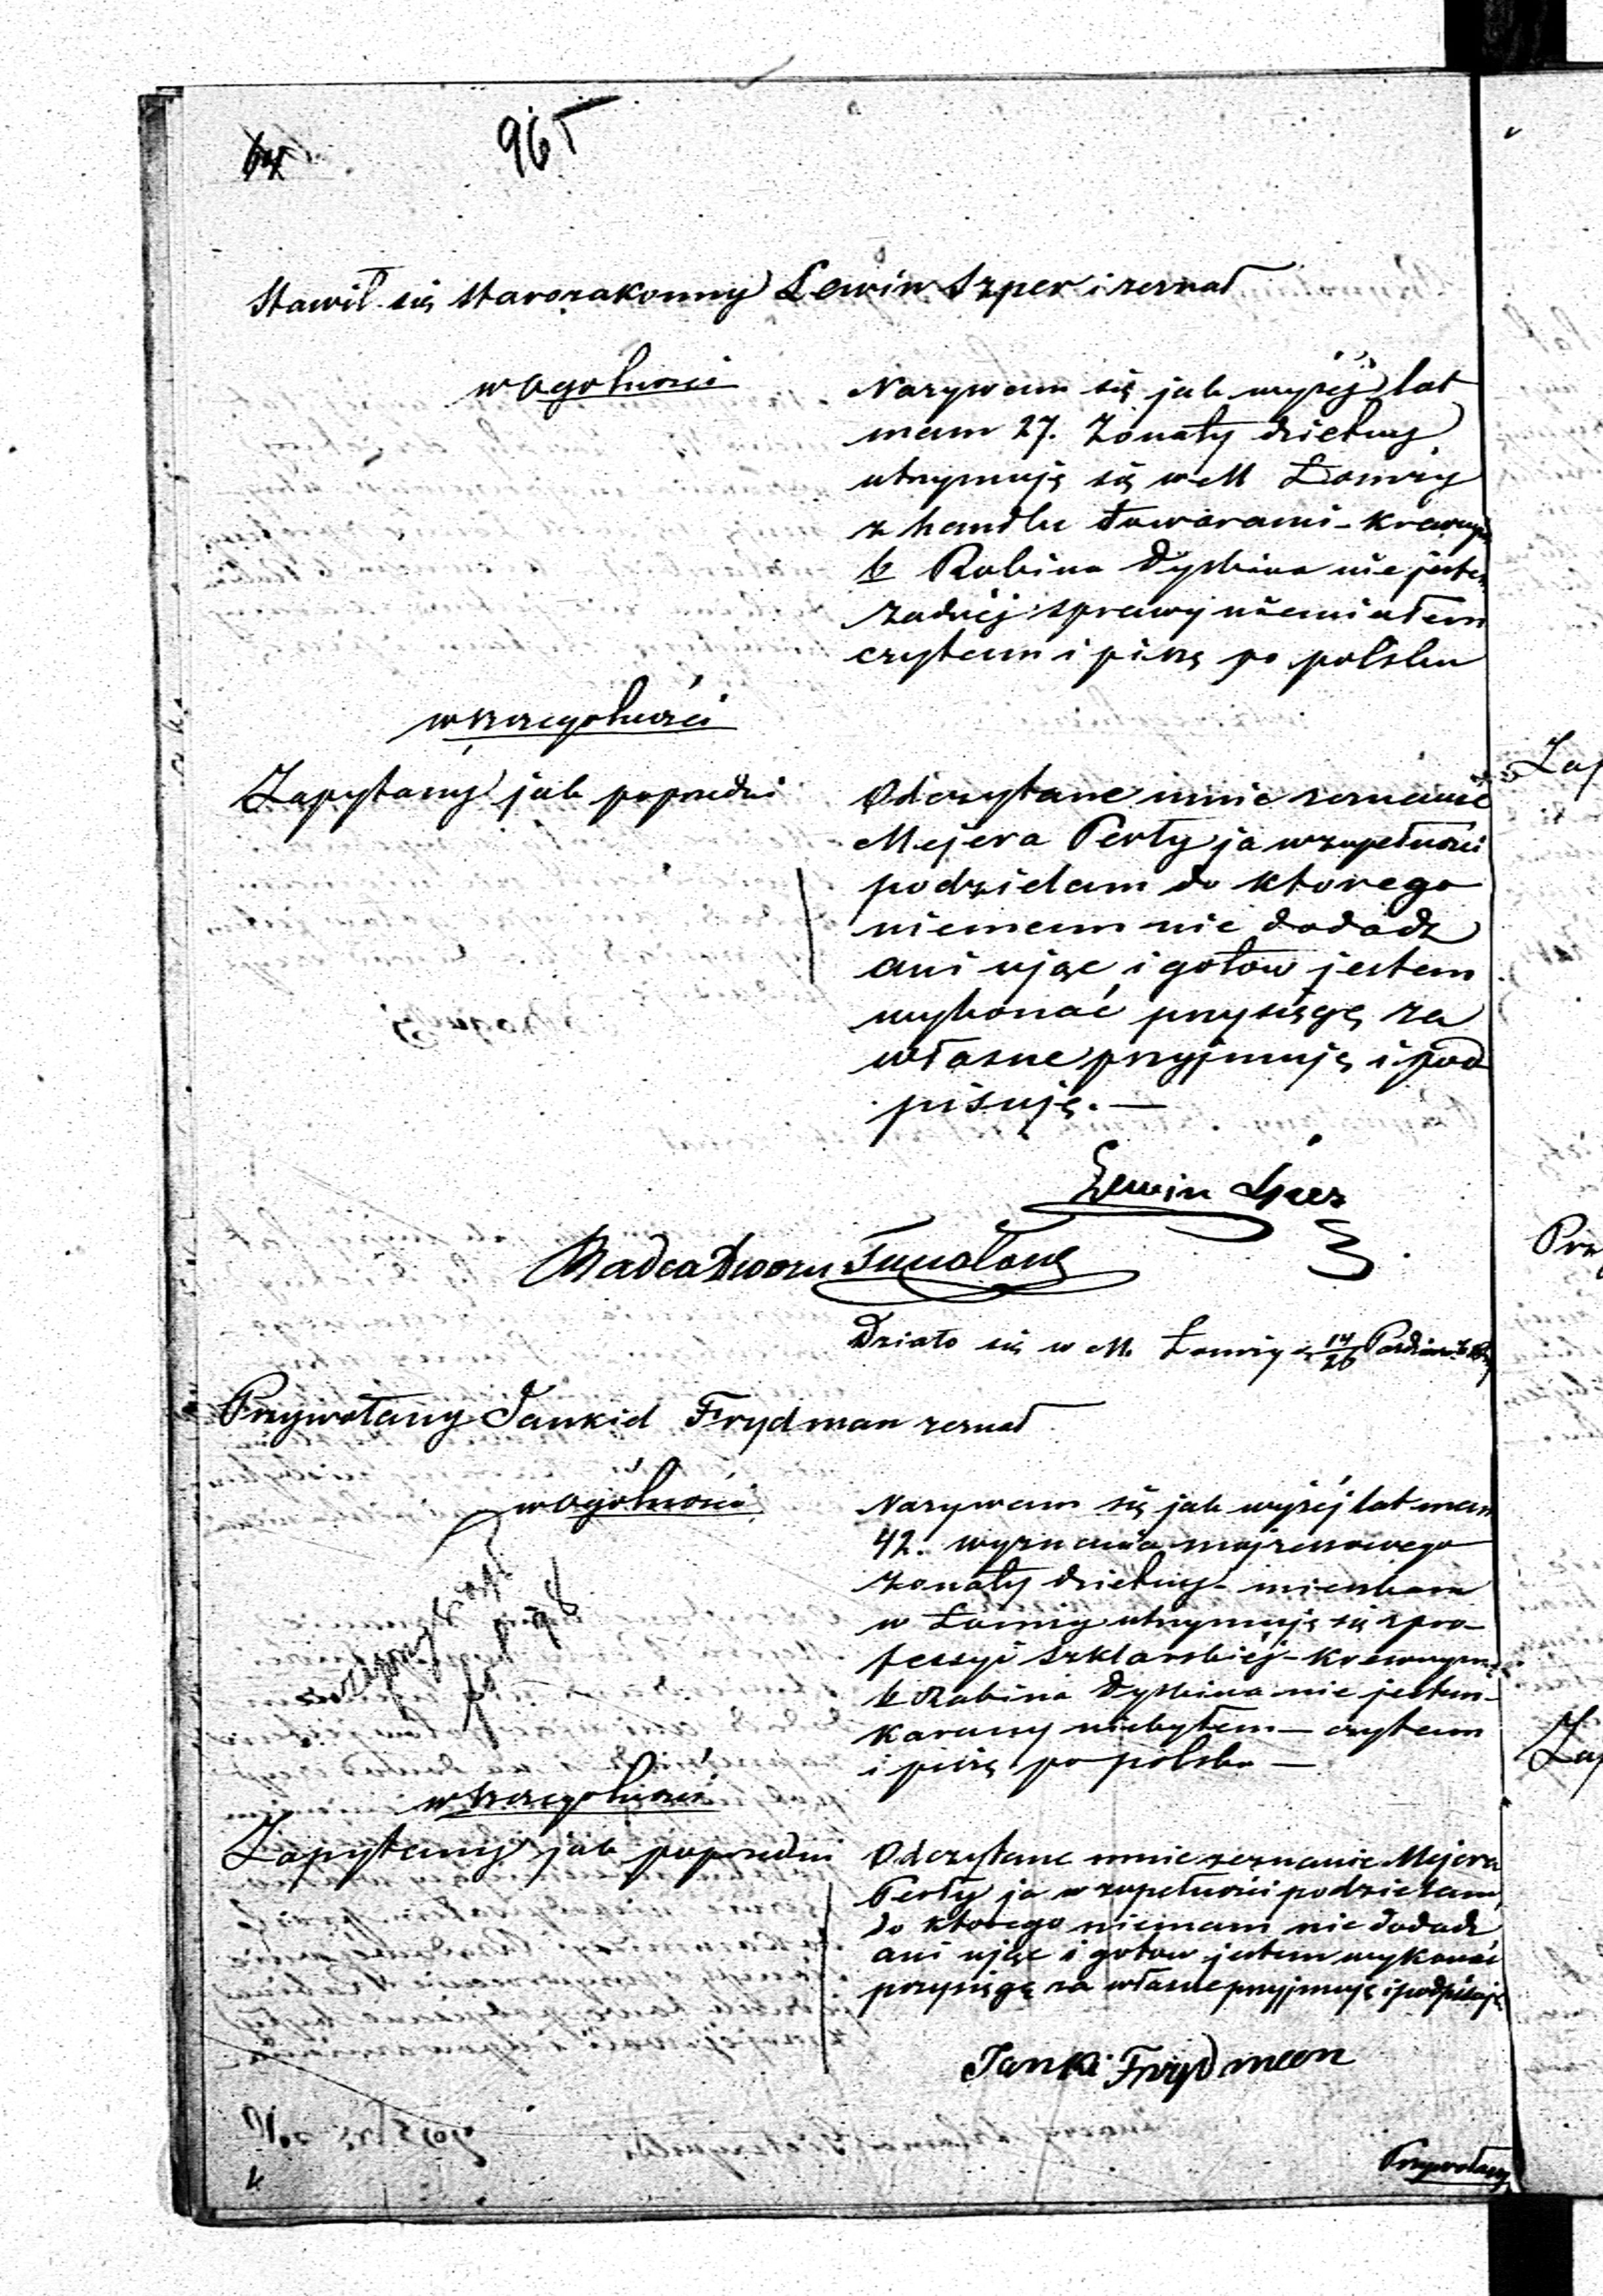 965
Stawił się starozakonny Lewin Szper i zeznał
w ogolności
Nazywam się jak wyżej lat
mam 27. żonaty dzietny
utrzymuję się w M Łomży
z handlu towarami - krewnym
b Rabina Dyskina nie jestem
żadnéj sprawy niemiałem
czytam i piszę po polsku
w szczególności
Zapytany jak poprzedni
Odczytane mnie zeznanie
Mejera Perły ja w zupełności
podzielam do ktorego
niemam nic dodadź
ani ująć i gotow jestem
wykonać przysięgę za
własne przyjmuję i pod
pisuję. —
Lewin Sper
Radca Dworu
Działo się w M. Łomży d 14/26 Paździer
Przywołany Jankiel Frydman zeznał
w ogólności
Nazywam się jak wyżéj lat mam
42. wyznania mojżeszowego
żonaty dzietny - mieszkam
w Łomży utrzymuję się z pro-
fessyi szklarskiéj - krewnym
b Rabina Dyskina nie jestem -
karany niebyłem — czytam
i piszę po polsku —
w szczegolności
Zapytany jak poprzedni
Odczytane mnie zeznanie Mejera
Perły ja w zupełności podzielam
do ktorego niemam nic dodadź
ani ująć i gotow jestem wykonać
przysięgę za własne przyjmuję i podpisuję
Janki Frydman
Przywołany